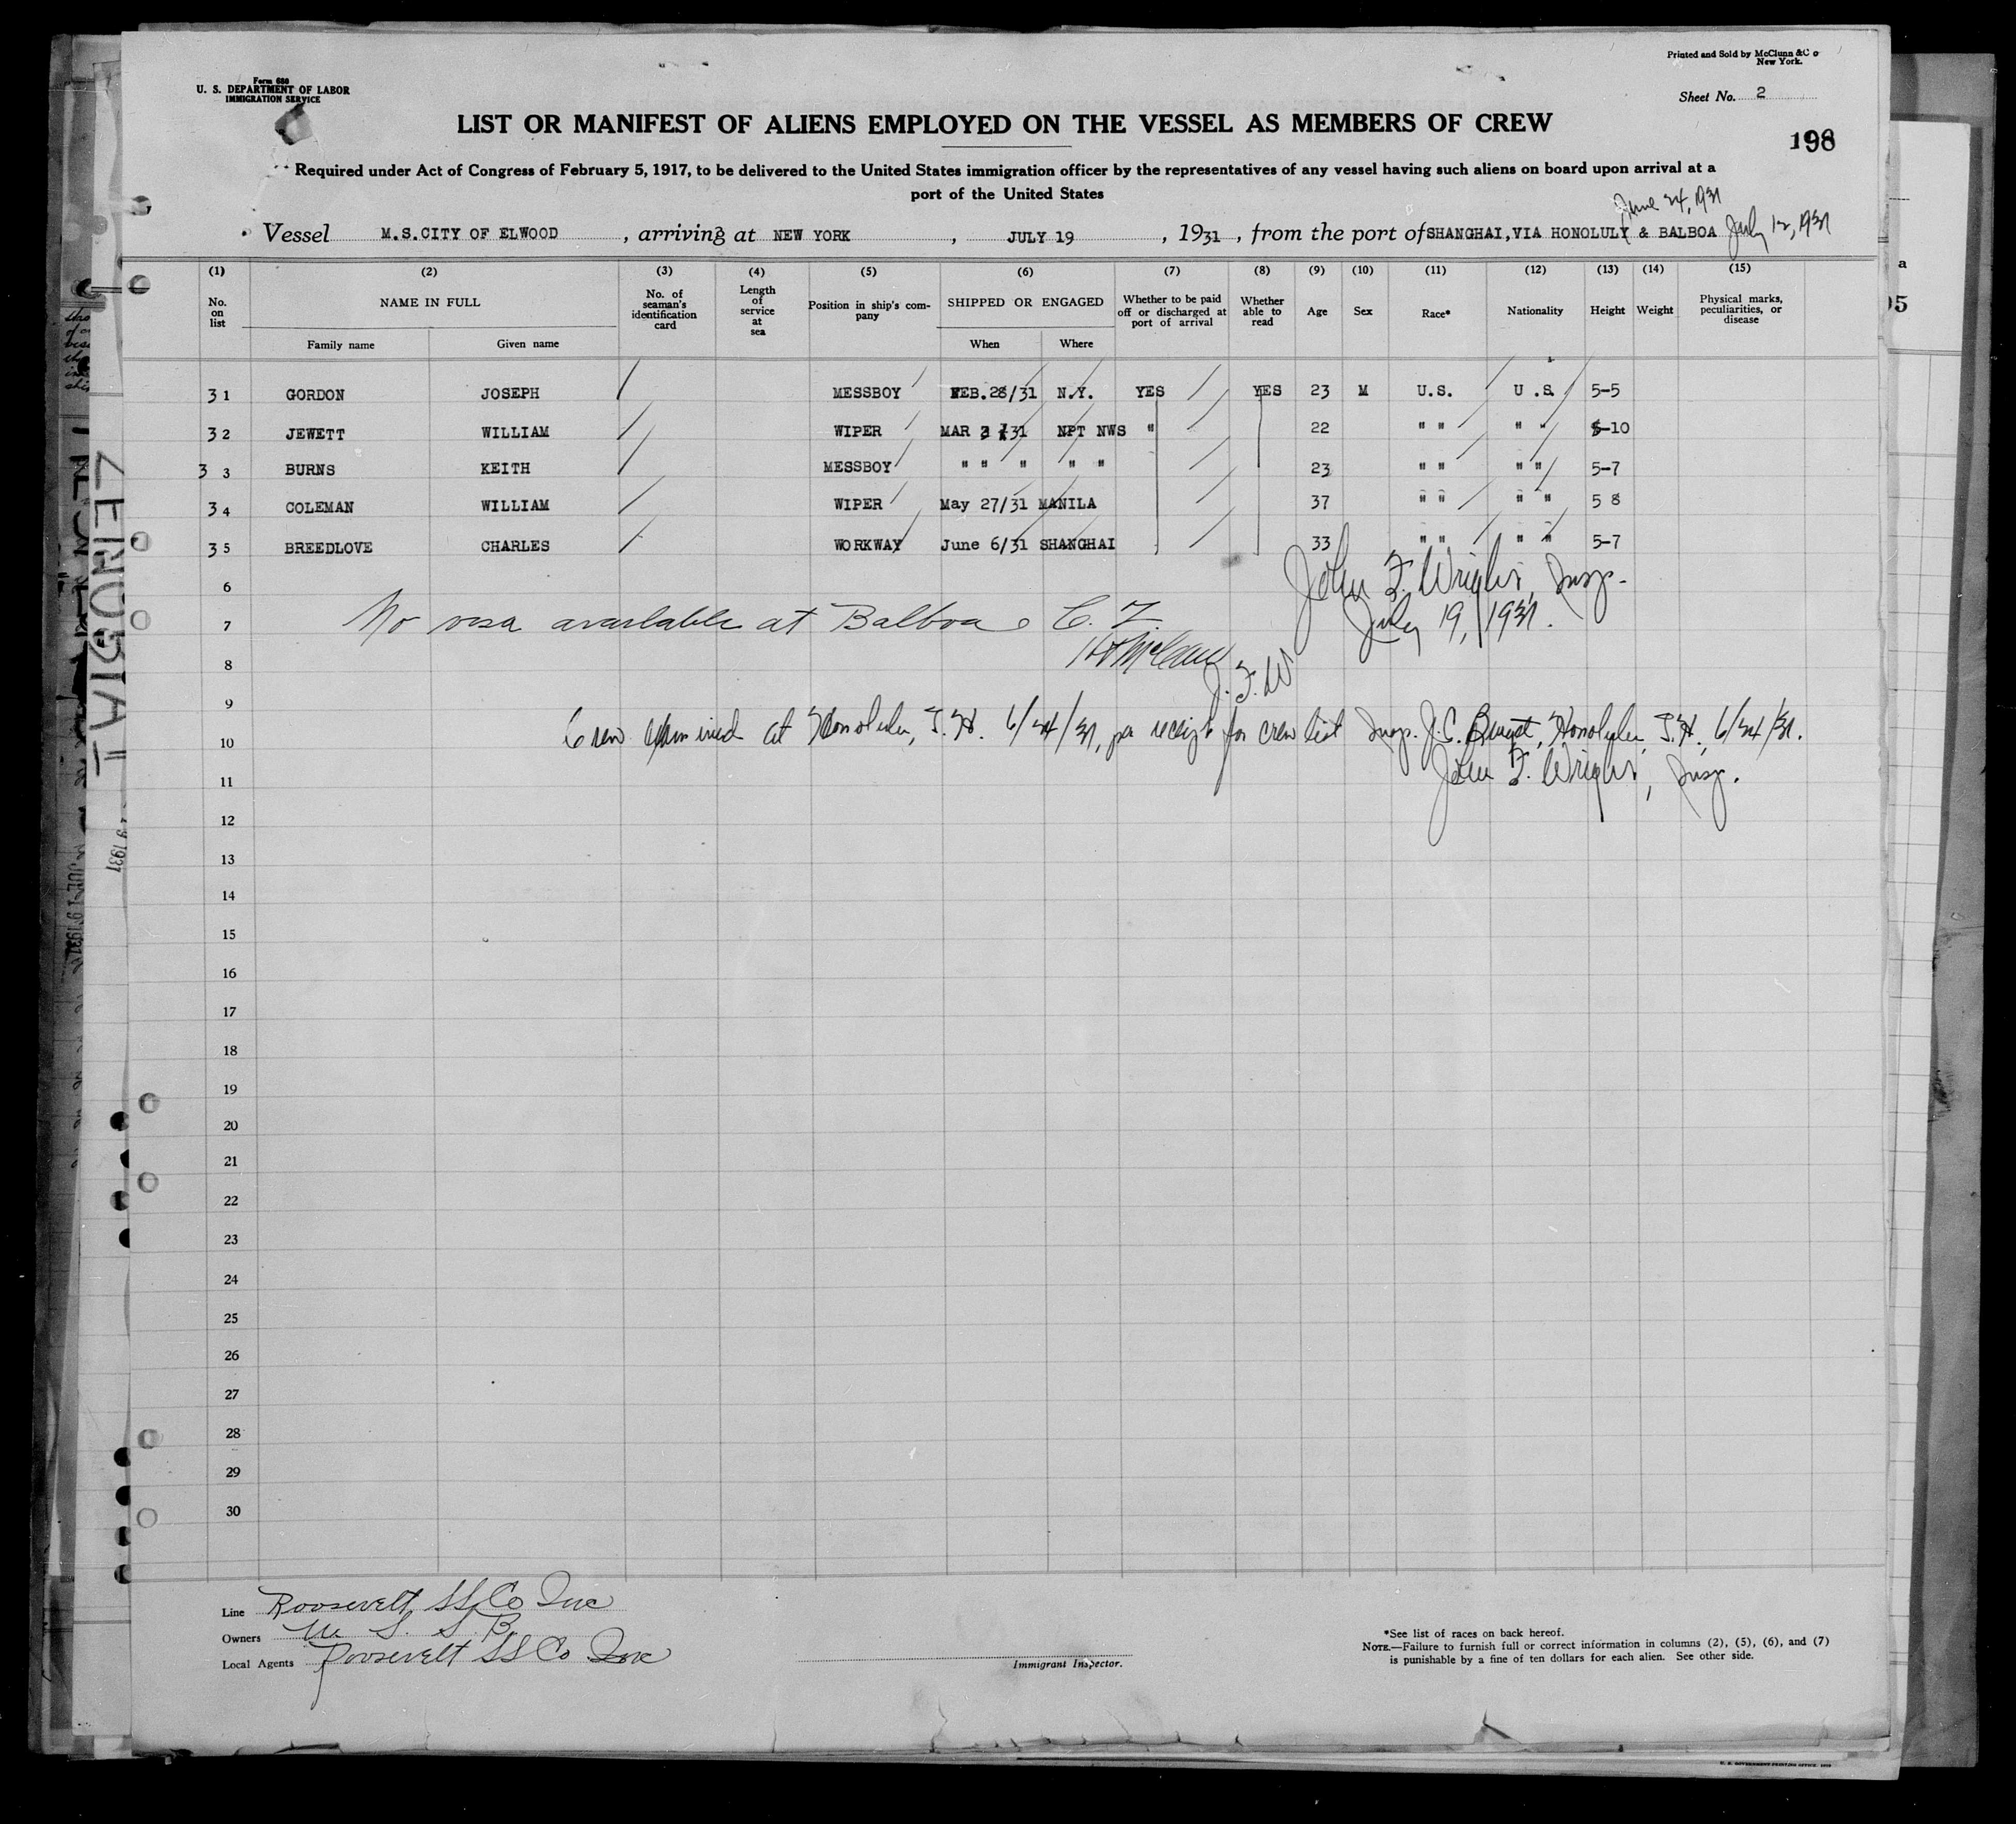 Form 680
U. S. DEPARTMENT OF LABOR
IMMIGRATION SERVICE
Printed and Sold by McClunn & Co
New York.
Sheet No. 2
LIST OR MANIFEST OF ALIENS EMPLOYED ON THE VESSEL AS MEMBERS OF CREW
198
Required under Act of Congress of February 5, 1917, to be delivered to the United States immigration officer by the representatives of any vessel having such aliens on board upon arrival at a
port of the United States
June 24, 1931
Vessel M.S.CITY OF ELWOOD , arriving at NEW YORK , JULY 19 , 1931 , from the port of SHANGHAI,VIA HONOLULU & BALBOA July 12, 1931
(1) (2) (3) (4) (5) (6) (7) (8) (9) (10) (11) (12) (13) (14) (15)
No. on list NAME IN FULL Family name Given name No. of seaman's identification card Length of service at sea Position in ship's company SHIPPED OR ENGAGED When Where Whether to be paid off or discharged at port of arrival Whether able to read Age Sex Race* Nationality Height Weight Physical marks, peculiarities, or disease
31 GORDON JOSEPH MESSBOY FEB.28/31 N.Y. YES YES 23 M U.S. U.S. 5-5
32 JEWETT WILLIAM WIPER MAR 31 NPT NWS " 22 " " " " 5-10
33 BURNS KEITH MESSBOY " " " " " 23 " " " " 5-7
34 COLEMAN WILLIAM WIPER May 27/31 MANILA 37 " " " " 5 8
35 BREEDLOVE CHARLES WORKWAY June 6/31 SHANGHAI 33 " " " " 5-7
6
John F. Wright, Insp.
7 No visa available at Balboa C. Z. July 19, 1931.
8
J. F. W
9
Crew examined at Honolulu, T.H. 6/24/31, per receipt for crew list Insp. J.C. Honolulu, T.H., 6/24/31.
10
John F. Wright, Insp.
11
12
13
14
15
16
17
18
19
20
21
22
23
24
25
26
27
28
29
30
Line Roosevelt SS Co Inc
Owners U. S. S. B.
Local Agents Roosevelt SS Co Inc
Immigrant Inspector.
*See list of races on back hereof.
NOTE.—Failure to furnish full or correct information in columns (2), (5), (6), and (7)
is punishable by a fine of ten dollars for each alien. See other side.